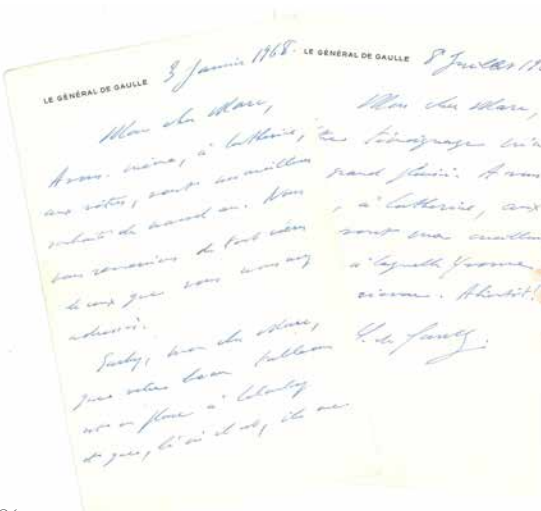 LE GÉNÉRAL DE GAULLE
3 Janvier 1968.
Mon cher Marc,
A vous-même, à Catherine,
aux vôtres, vont nos meilleurs
souhaits de nouvel an. Nous
vous remercions de tout cœur
de ceux que vous nous avez
adressés.
Sachez, mon cher Marc,
que votre beau tableau
est en place à Colombey
et que, là où il est, il
LE GÉNÉRAL DE GAULLE
8 Juillet 19
Mon cher Marc,
témoignage m'a
grand plaisir. A vous
, à Catherine, aux
vont mes meilleurs
à laquelle Yvonne
sienne. A bientôt!
C. de Gaulle.